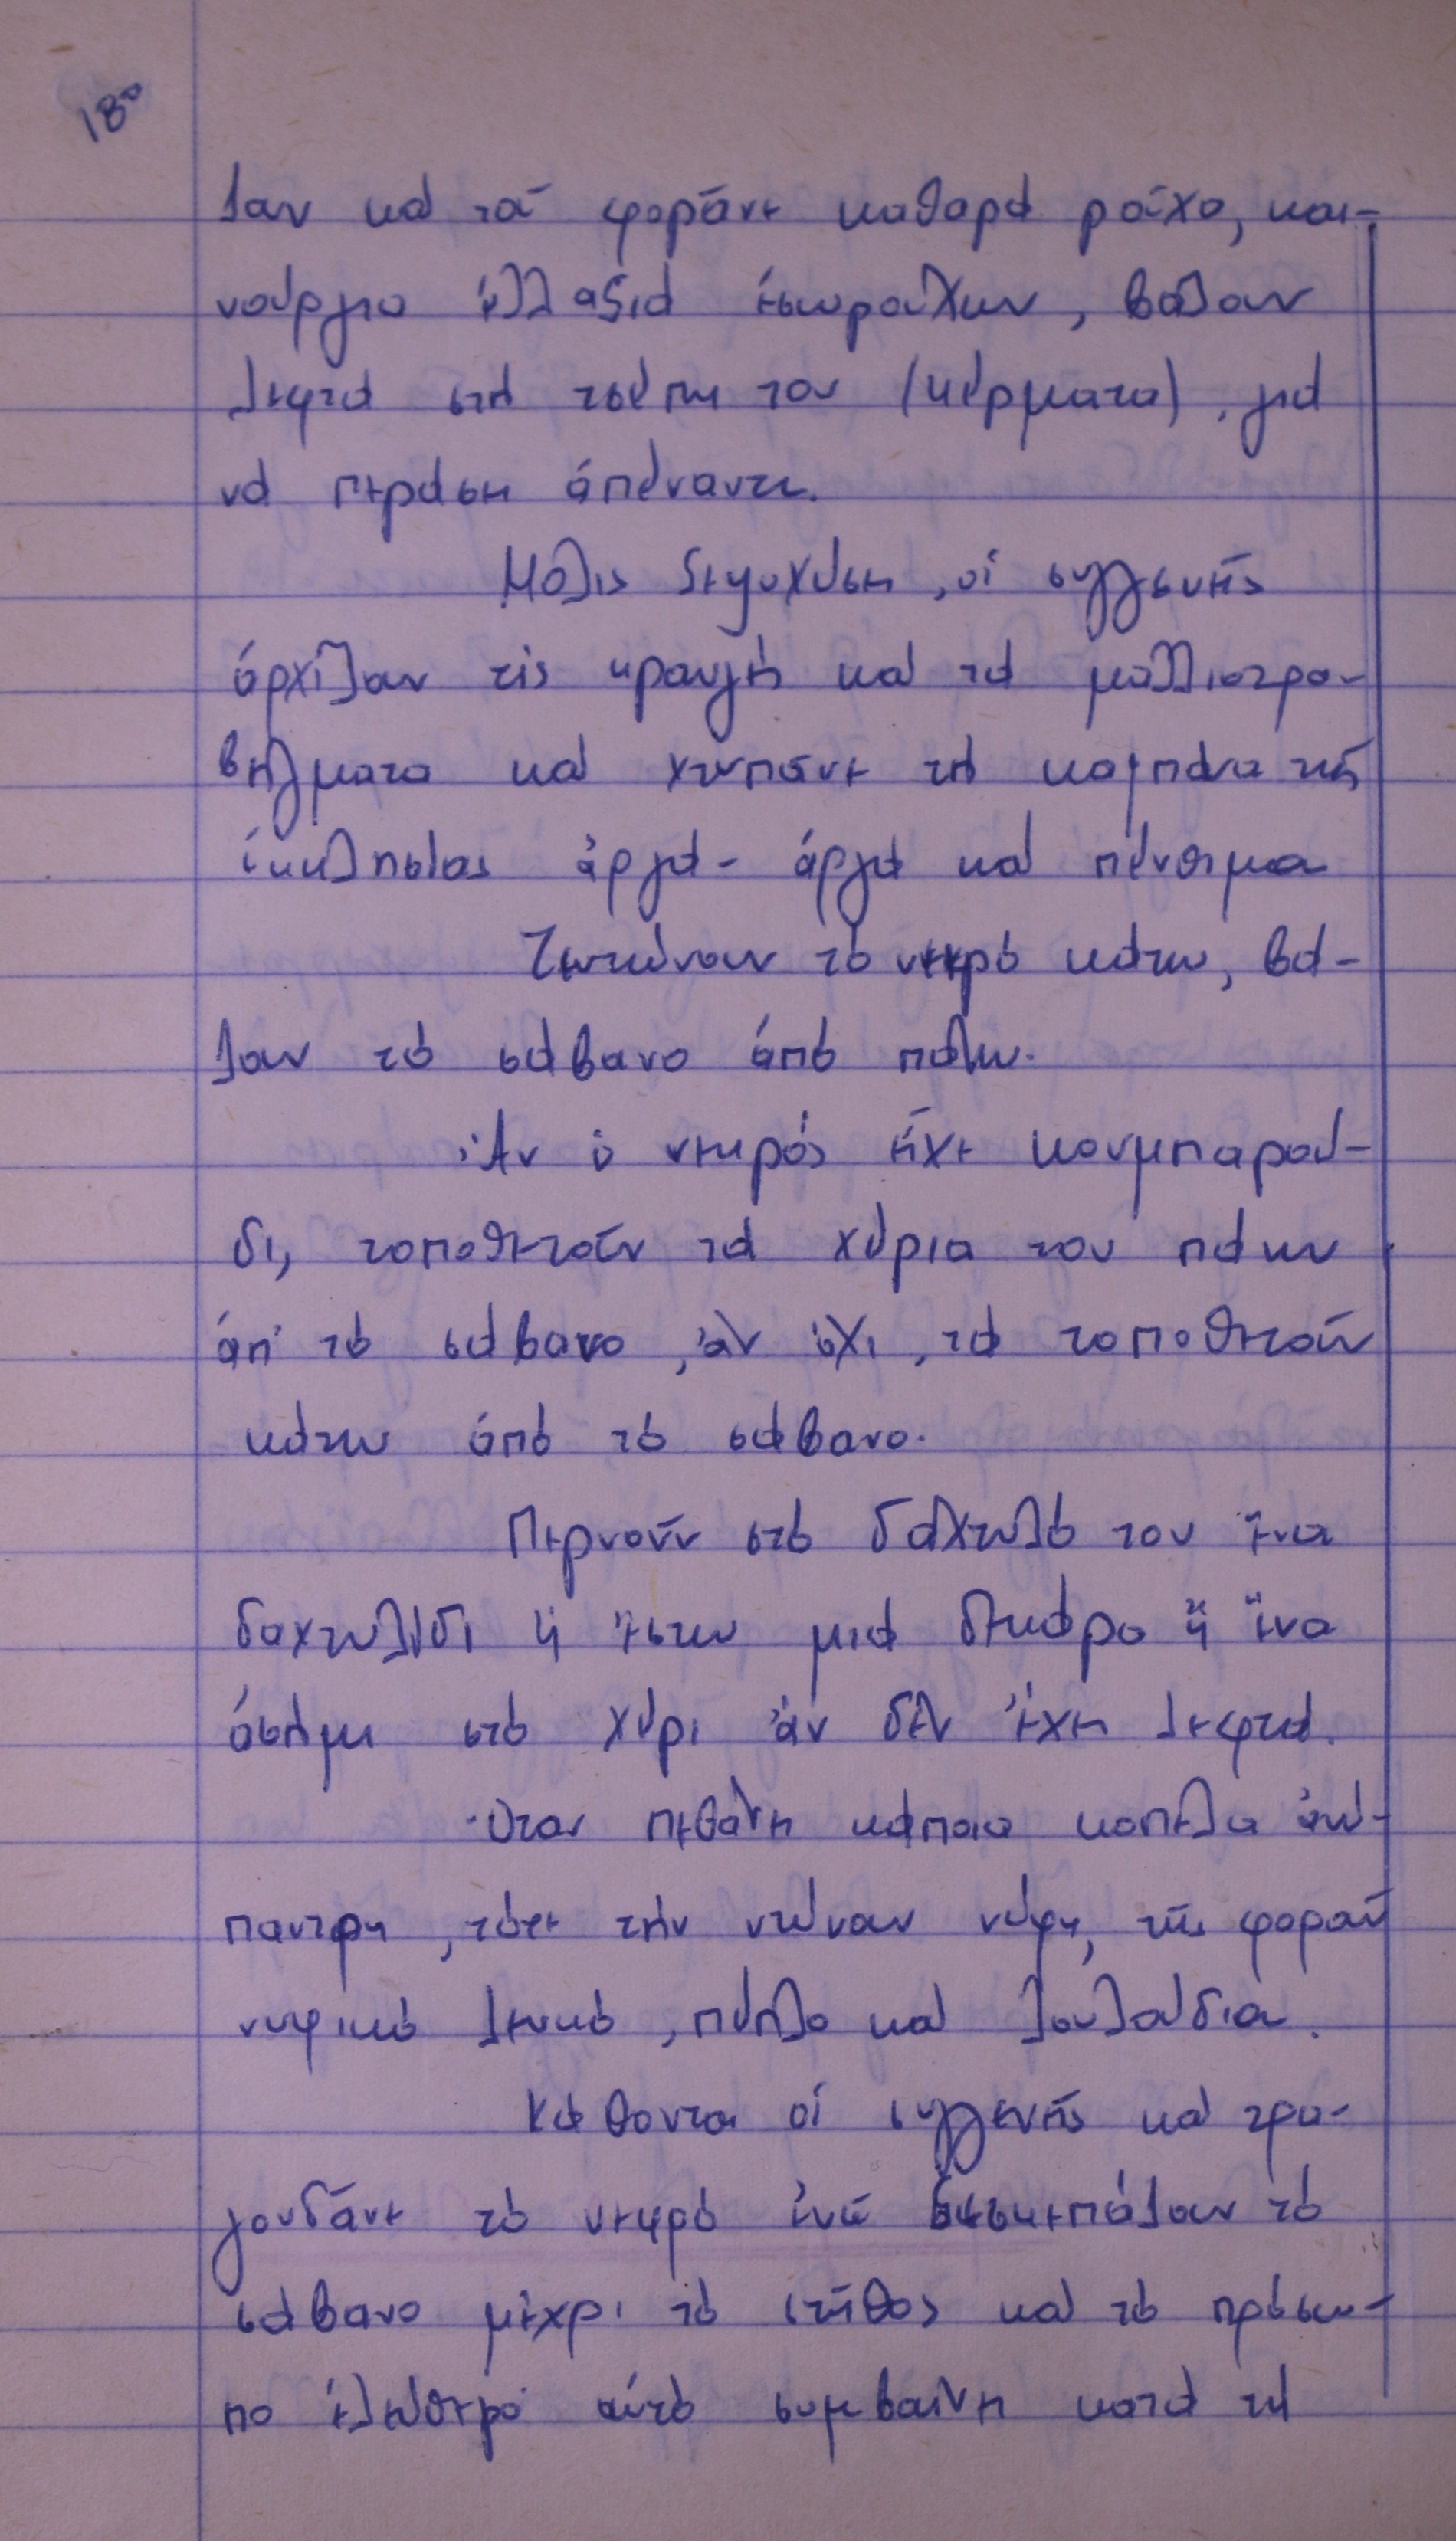 18º
ζαν καί τοῦ φορᾶνε καθαρά ροῦχα, και-
νούργια ἀλλαξιά ἐσωρούχων, βάζουν
λεφτά στή τσέπη του (κέρματα), γιά
νά περάσει ἀπέναντι.
Μόλις ξεψυχήσει, οἱ συγγενεῖς
ἀρχίζουν τίς κραυγές καί τά μαλλιοτρα-
βήγματα καί χτυπᾶνε τή καμπάνα τῆς
ἐκκλησίας ἀργά - ἀργά καί πένθιμα
Τεντώνουν τό νεκρό κάτω, βά-
ζουν τό σάβανο ἀπό πάνω.
Ἄν ὁ νεκρός εἶχε κουμπαρού-
δι, τοποθετοῦν τά χέρια του πάνω
ἀπ' τό σάβανο, ἄν ὄχι, τά τοποθετοῦν
κάτω ἀπό τό σάβανο.
Περνοῦν στό δάχτυλό του ἕνα
δαχτυλίδι ἤ ἔστω μιά δεκάρα ἤ ἕνα
ἀσήμι στό χέρι ἄν δέν ἔχει λεφτά.
Ὅταν πεθάνει κάποια κοπέλα ἀνύ-
παντρη, τότε τήν ντύναν νύφη, τῆς φοροῦν
νυφικό λευκό, πέπλο καί λουλούδια.
Κάθονται οἱ συγγενεῖς καί τρα-
γουδᾶνε τό νεκρό ἐνῶ ξεσκεπάζουν τό
σάβανο μέχρι τό στῆθος καί τό πρόσω-
πο ἐλεύθερο αὐτό συμβαίνει κατά τή